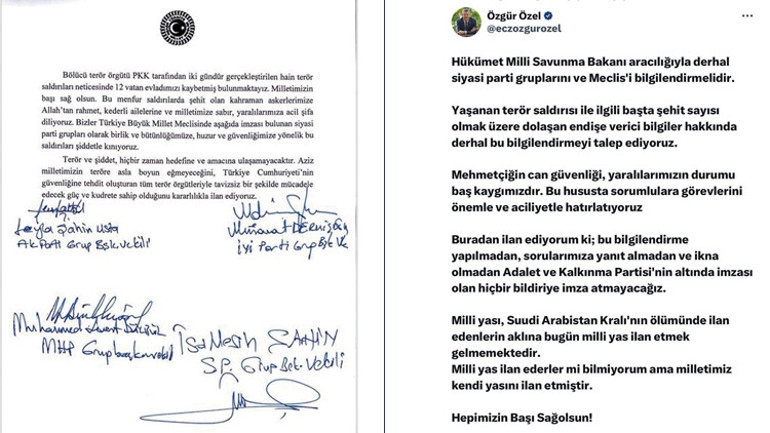 Bölücü terör örgütü PKK tarafından iki gündür gerçekleştirilen hain terör
saldırıları neticesinde 12 vatan evladımızı kaybetmiş bulunmaktayız. Milletimizin
başı sağ olsun. Bu menfur saldırılarda şehit olan kahraman askerlerimize
Allah'tan rahmet, kederli ailelerine ve milletimize sabır, yaralılarımıza acil şifa
diliyoruz. Bizler Türkiye Büyük Millet Meclisinde aşağıda imzası bulunan siyasi
parti grupları olarak birlik ve bütünlüğümüze, huzur ve güvenliğimize yönelik bu
saldırıları şiddetle kınıyoruz.
Terör ve şiddet, hiçbir zaman hedefine ve amacına ulaşamayacaktır. Aziz
milletimizin teröre asla boyun eğmeyeceğini, Türkiye Cumhuriyeti'nin
güvenliğine tehdit oluşturan tüm terör örgütleriyle tavizsiz bir şekilde mücadele
edecek güç ve kudrete sahip olduğunu kararlılıkla ilan ediyoruz.
Leyla Şahin Usta
AK Parti Grup Bşk. Vekili
Müsavat DERVİŞOĞLU
İyi Parti Grup Bşk V
Muhammed Levent BÜLBÜL
MHP Grup başkanvekili
İsa Mesih ŞAHİN
SP. Grup Bşk. Vekili
Özgür Özel
@eczozgurozel
Hükümet Milli Savunma Bakanı aracılığıyla derhal
siyasi parti gruplarını ve Meclis'i bilgilendirmelidir.
Yaşanan terör saldırısı ile ilgili başta şehit sayısı
olmak üzere dolaşan endişe verici bilgiler hakkında
derhal bu bilgilendirmeyi talep ediyoruz.
Mehmetçiğin can güvenliği, yaralılarımızın durumu
baş kaygımızdır. Bu hususta sorumlulara görevlerini
önemle ve aciliyetle hatırlatıyoruz
Buradan ilan ediyorum ki; bu bilgilendirme
yapılmadan, sorularımıza yanıt almadan ve ikna
olmadan Adalet ve Kalkınma Partisi'nin altında imzası
olan hiçbir bildiriye imza atmayacağız.
Milli yası, Suudi Arabistan Kralı'nın ölümünde ilan
edenlerin aklına bugün milli yas ilan etmek
gelmemektedir.
Milli yas ilan ederler mi bilmiyorum ama milletimiz
kendi yasını ilan etmiştir.
Hepimizin Başı Sağolsun!